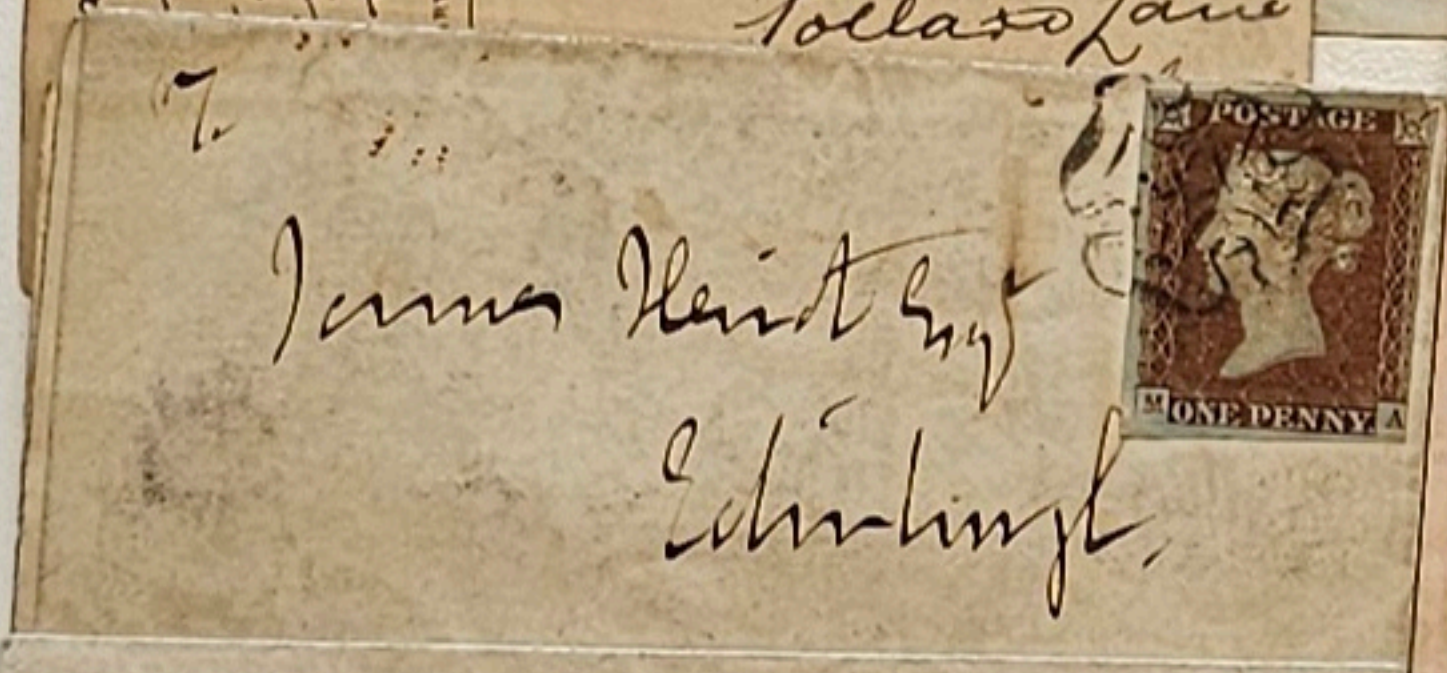 Pollard Lane
7.
James Heriot Esqr
Edinburgh.
POSTAGE
M ONE PENNY A